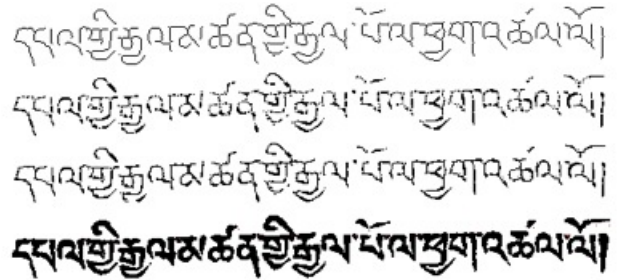 དཔལ་གྱི་རྒྱལ་མཚན་གྱི་རྒྱལ་པོ་ལ་ཕྱག་འཚལ་ལོ།
དཔལ་གྱི་རྒྱལ་མཚན་གྱི་རྒྱལ་པོ་ལ་ཕྱག་འཚལ་ལོ།
དཔལ་གྱི་རྒྱལ་མཚན་གྱི་རྒྱལ་པོ་ལ་ཕྱག་འཚལ་ལོ།
དཔལ་གྱི་རྒྱལ་མཚན་གྱི་རྒྱལ་པོ་ལ་ཕྱག་འཚལ་ལོ།